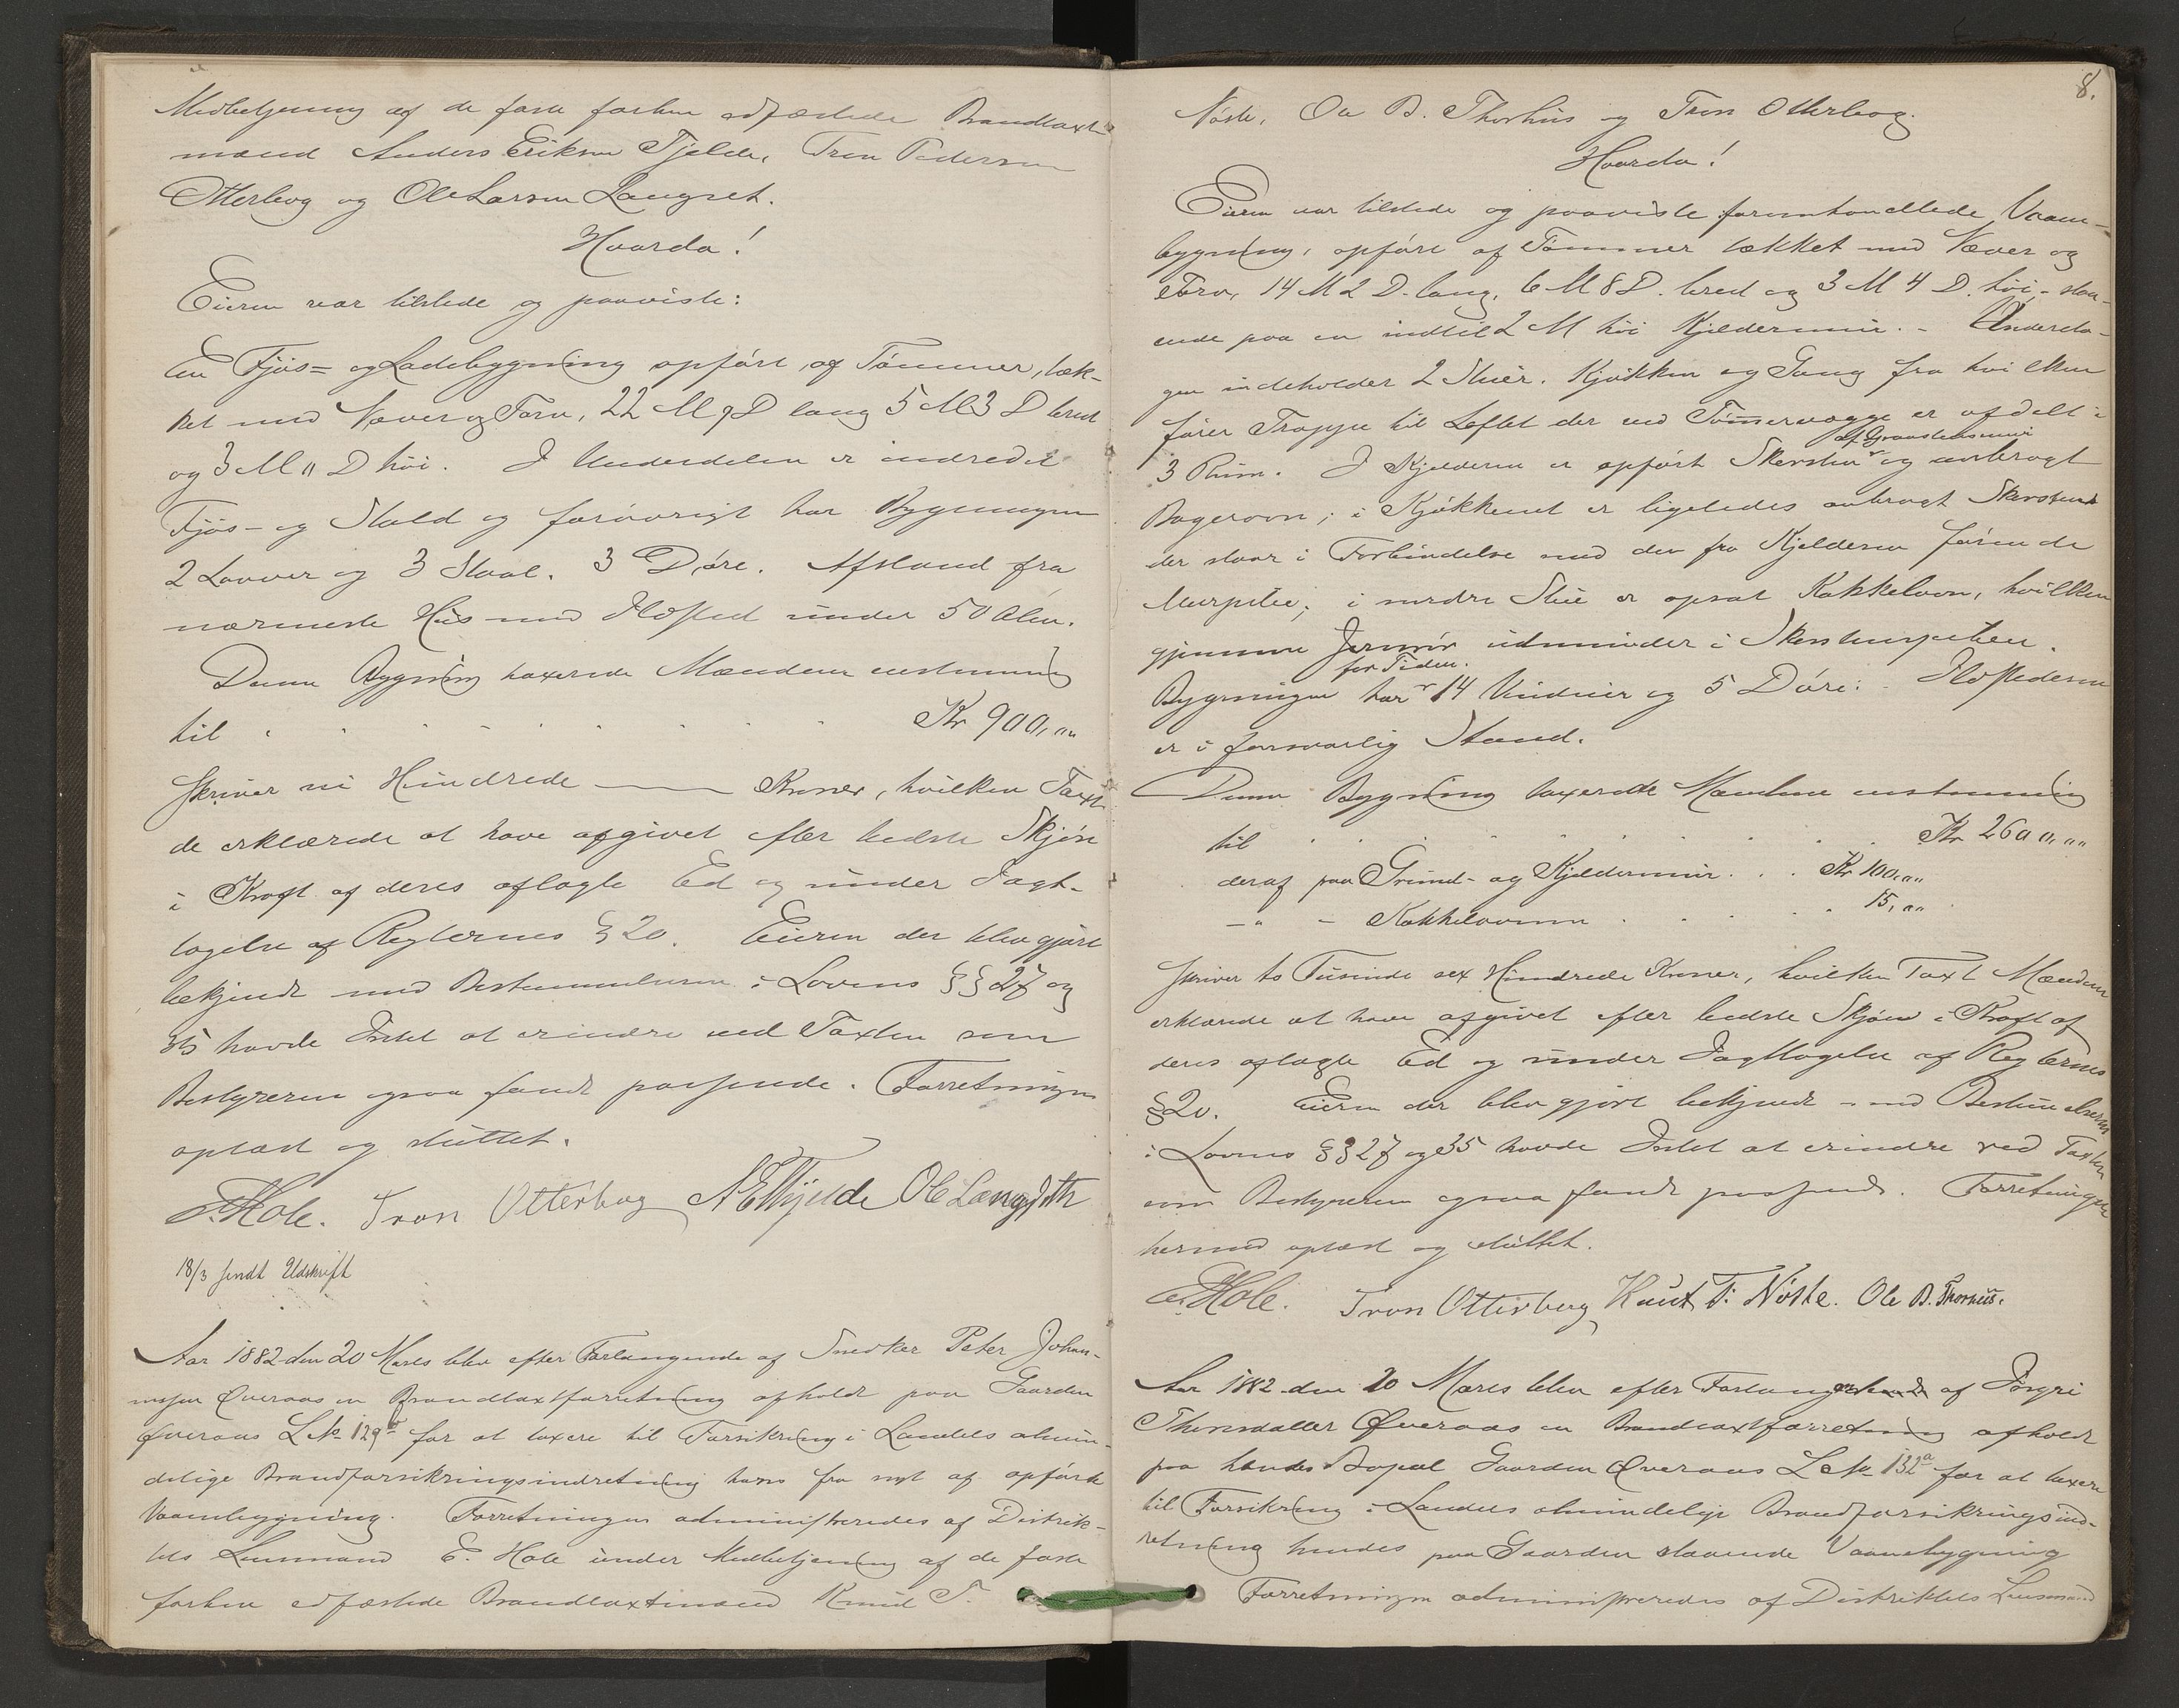 Medbetjening af de faste forhen edfæstede Brandtaxt-
mænd Anders Eriksen Tjelde, Tron Pedersen
Otterbog og Ole Larsen Langset.
Hvorda!
Eieren var tilstede og paaviste:
En Fjøs= og Ladebygning opført af Tømmer, tæk-
ket med Næver og Torv, 22 M 9 D lang 5 M 3 D bred
og 3 M " D høi. I Underdelen er indredet
Fjøs- og Stald og forøvrigt har Bygningen
2 Laaver og 3 Staal. 3 Døre. Afstand fra
nærmeste Hus med Ildsted under 50 Alen.
Denne Bygning taxerede Mændene enstemmig
til . . . . . . . . Kr 900,""
skriver ni Hundrede —— Kroner, hvilken Taxt
de erklærede at have afgivet efter bedste Skjøn
i Kraft af deres aflagte Ed og under Iagt-
tagelse af Reglernes § 20. Eieren der blev gjort
bekjendt med Bestemmelserne i Lovens §§ 27 og
35 havde Intet at erindre ved Taxten som
Bestyreren ogsaa fandt passende. Forretningen
oplæst og sluttet.
E. Hole. Tron Otterbog AETjelde Ole Langseth
18/3 sendt Udskrift
Aar 1882 den 20 Marts blev efter Forlangende af Snedker Peter Johan-
nessen Øveraas en Brandtaxtforretning afholdt paa Gaarden
Øveraas L No 129 for at taxere til Forsikring i Landets almin-
delige Brandforsikringsindretning hans fra nyt af opførte
Vaanebygning. Forretningen administreredes af Distrik-
tets Lensmand E. Hole under Medbetjening af de faste
forhen edfæstede Brandtaxtmænd Knud T.
8.
Nøste, Ole B. Thorhus og Tron Otterbog.
Hvorda!
Eieren var tilstede og paaviste foromhandlede Vaane-
bygning, opført af Tømmer tækket med Næver og
Torv, 14 M 2 D. lang, 6 M 8 D. bred og 3 M 4 D. høi, staa-
ende paa en indtil 2 M høi Kjeldermur. - Undereta-
gen indeholder 2 Stuer, Kjøkken og Gang fra hvilken
fører Trappe til Loftet der ved Tømmervægge er afdelt i
3 Rum. I Kjelderen er opført Skorsten af Graastensmur og anbragt
Bagerovn; i Kjøkkenet er ligeledes anbragt Skorsten
der staar i Forbindelse med den fra Kjelderen førende
Murpibe; i nordre Stue er opsat Kakkelovn, hvilken
gjennem Jernrør udmunder i Skorstenspiben.
Bygningen har for Tiden 14 Vinduer og 5 Døre. - Ildstederne
er i forsvarlig Stand.
Denne Bygning taxerede Mændene enstemmig
til . . . . . . . . Kr 2600,""
deraf paa Grund- og Kjeldermur . . . Kr 100,""
—" - Kakkelovnen . . . . . 15,""
skriver to Tusinde sex Hundrede Kroner, hvilken Taxt Mændene
erklærede at have afgivet efter bedste Skjøn i Kraft af
deres aflagte Ed og under Iagttagelse af Reglernes
§ 20. Eieren der blev gjort bekjendt med Bestemmelserne
i Lovens §§ 27 og 35 havde Intet at erindre ved Taxten
som Bestyreren ogsaa fandt passende. Forretningen
hermed oplæst og sluttet.
E. Hole. Tron Otterbog Knut T. Nøste. Ole B. Thorhus.
Aar 1882 den 20 Marts blev efter Forlangende af
Øveraas en Brandtaxtforretning afholdt
paa hendes Bopæl Gaarden Øveraas L No 132a for at taxere
til Forsikring i Landets almindelige Brandforsikringsind-
retning hendes paa Gaarden staaende Vaanebygning
Forretningen administreredes af Distriktets Lensmand